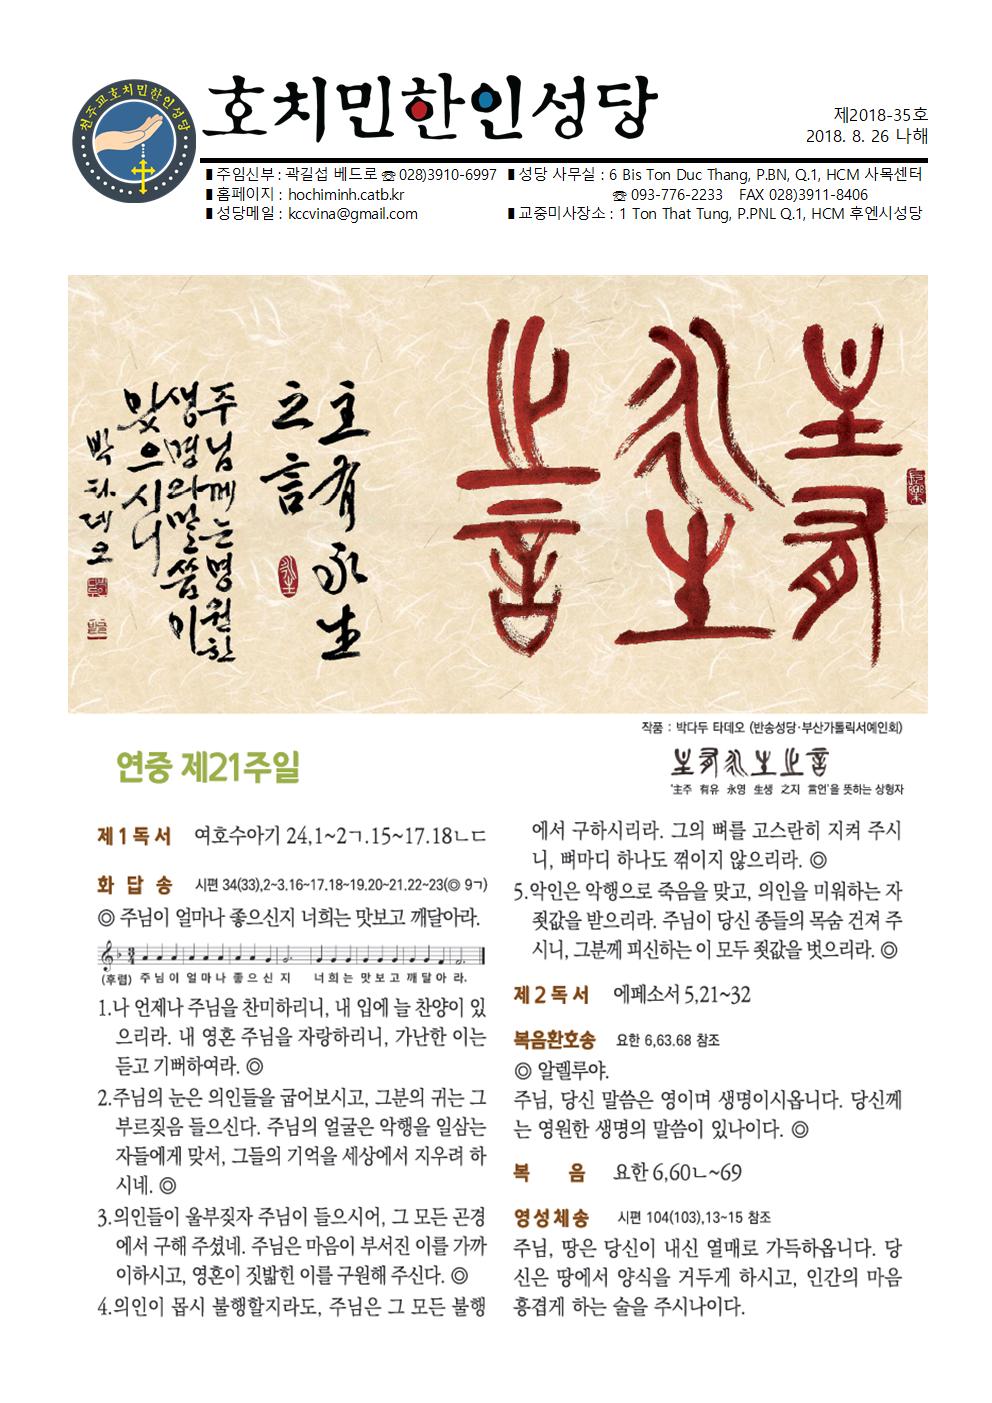 천주교호치민한인성당
호치민한인성당
제2018-35호
2018. 8. 26 나해
▮주임신부 : 곽길섭 베드로 ☏ 028)3910-6997
▮홈페이지 : hochiminh.catb.kr
▮성당메일 : kccvina@gmail.com
▮성당 사무실 : 6 Bis Ton Duc Thang, P.BN, Q.1, HCM 사목센터
☏ 093-776-2233 FAX 028)3911-8406
▮교중미사장소 : 1 Ton That Tung, P.PNL Q.1, HCM 후엔시성당
主有
永生
之言
主有永生
之言
주님께는 영원한
생명의 말씀이
있으시니
박타데오
작품 : 박다두 타데오 (반송성당·부산가톨릭서예인회)
主有永生之言
'主주 有유 永영 生생 之지 言언'을 뜻하는 상형자
연중 제21주일
제1독서 여호수아기 24,1~2ㄱ.15~17.18ㄴㄷ
화답송 시편 34(33),2~3.16~17.18~19.20~21.22~23(◎ 9ㄱ)
◎ 주님이 얼마나 좋으신지 너희는 맛보고 깨달아라.
(후렴) 주님이 얼마나 좋으신지 너희는 맛보고 깨달아 라.
1.나 언제나 주님을 찬미하리니, 내 입에 늘 찬양이 있
으리라. 내 영혼 주님을 자랑하리니, 가난한 이는
듣고 기뻐하여라. ◎
2.주님의 눈은 의인들을 굽어보시고, 그분의 귀는 그
부르짖음 들으신다. 주님의 얼굴은 악행을 일삼는
자들에게 맞서, 그들의 기억을 세상에서 지우려 하
시네. ◎
3.의인들이 울부짖자 주님이 들으시어, 그 모든 곤경
에서 구해 주셨네. 주님은 마음이 부서진 이를 가까
이하시고, 영혼이 짓밟힌 이를 구원해 주신다. ◎
4.의인이 몹시 불행할지라도, 주님은 그 모든 불행
에서 구하시리라. 그의 뼈를 고스란히 지켜 주시
니, 뼈마디 하나도 꺾이지 않으리라. ◎
5.악인은 악행으로 죽음을 맞고, 의인을 미워하는 자
죗값을 받으리라. 주님이 당신 종들의 목숨 건져 주
시니, 그분께 피신하는 이 모두 죗값을 벗으리라. ◎
제2독서 에페소서 5,21~32
복음환호송 요한 6,63.68 참조
◎ 알렐루야.
주님, 당신 말씀은 영이며 생명이시옵니다. 당신께
는 영원한 생명의 말씀이 있나이다. ◎
복 음 요한 6,60ㄴ~69
영성체송 시편 104(103),13~15 참조
주님, 땅은 당신이 내신 열매로 가득하옵니다. 당
신은 땅에서 양식을 거두게 하시고, 인간의 마음
흥겹게 하는 술을 주시나이다.